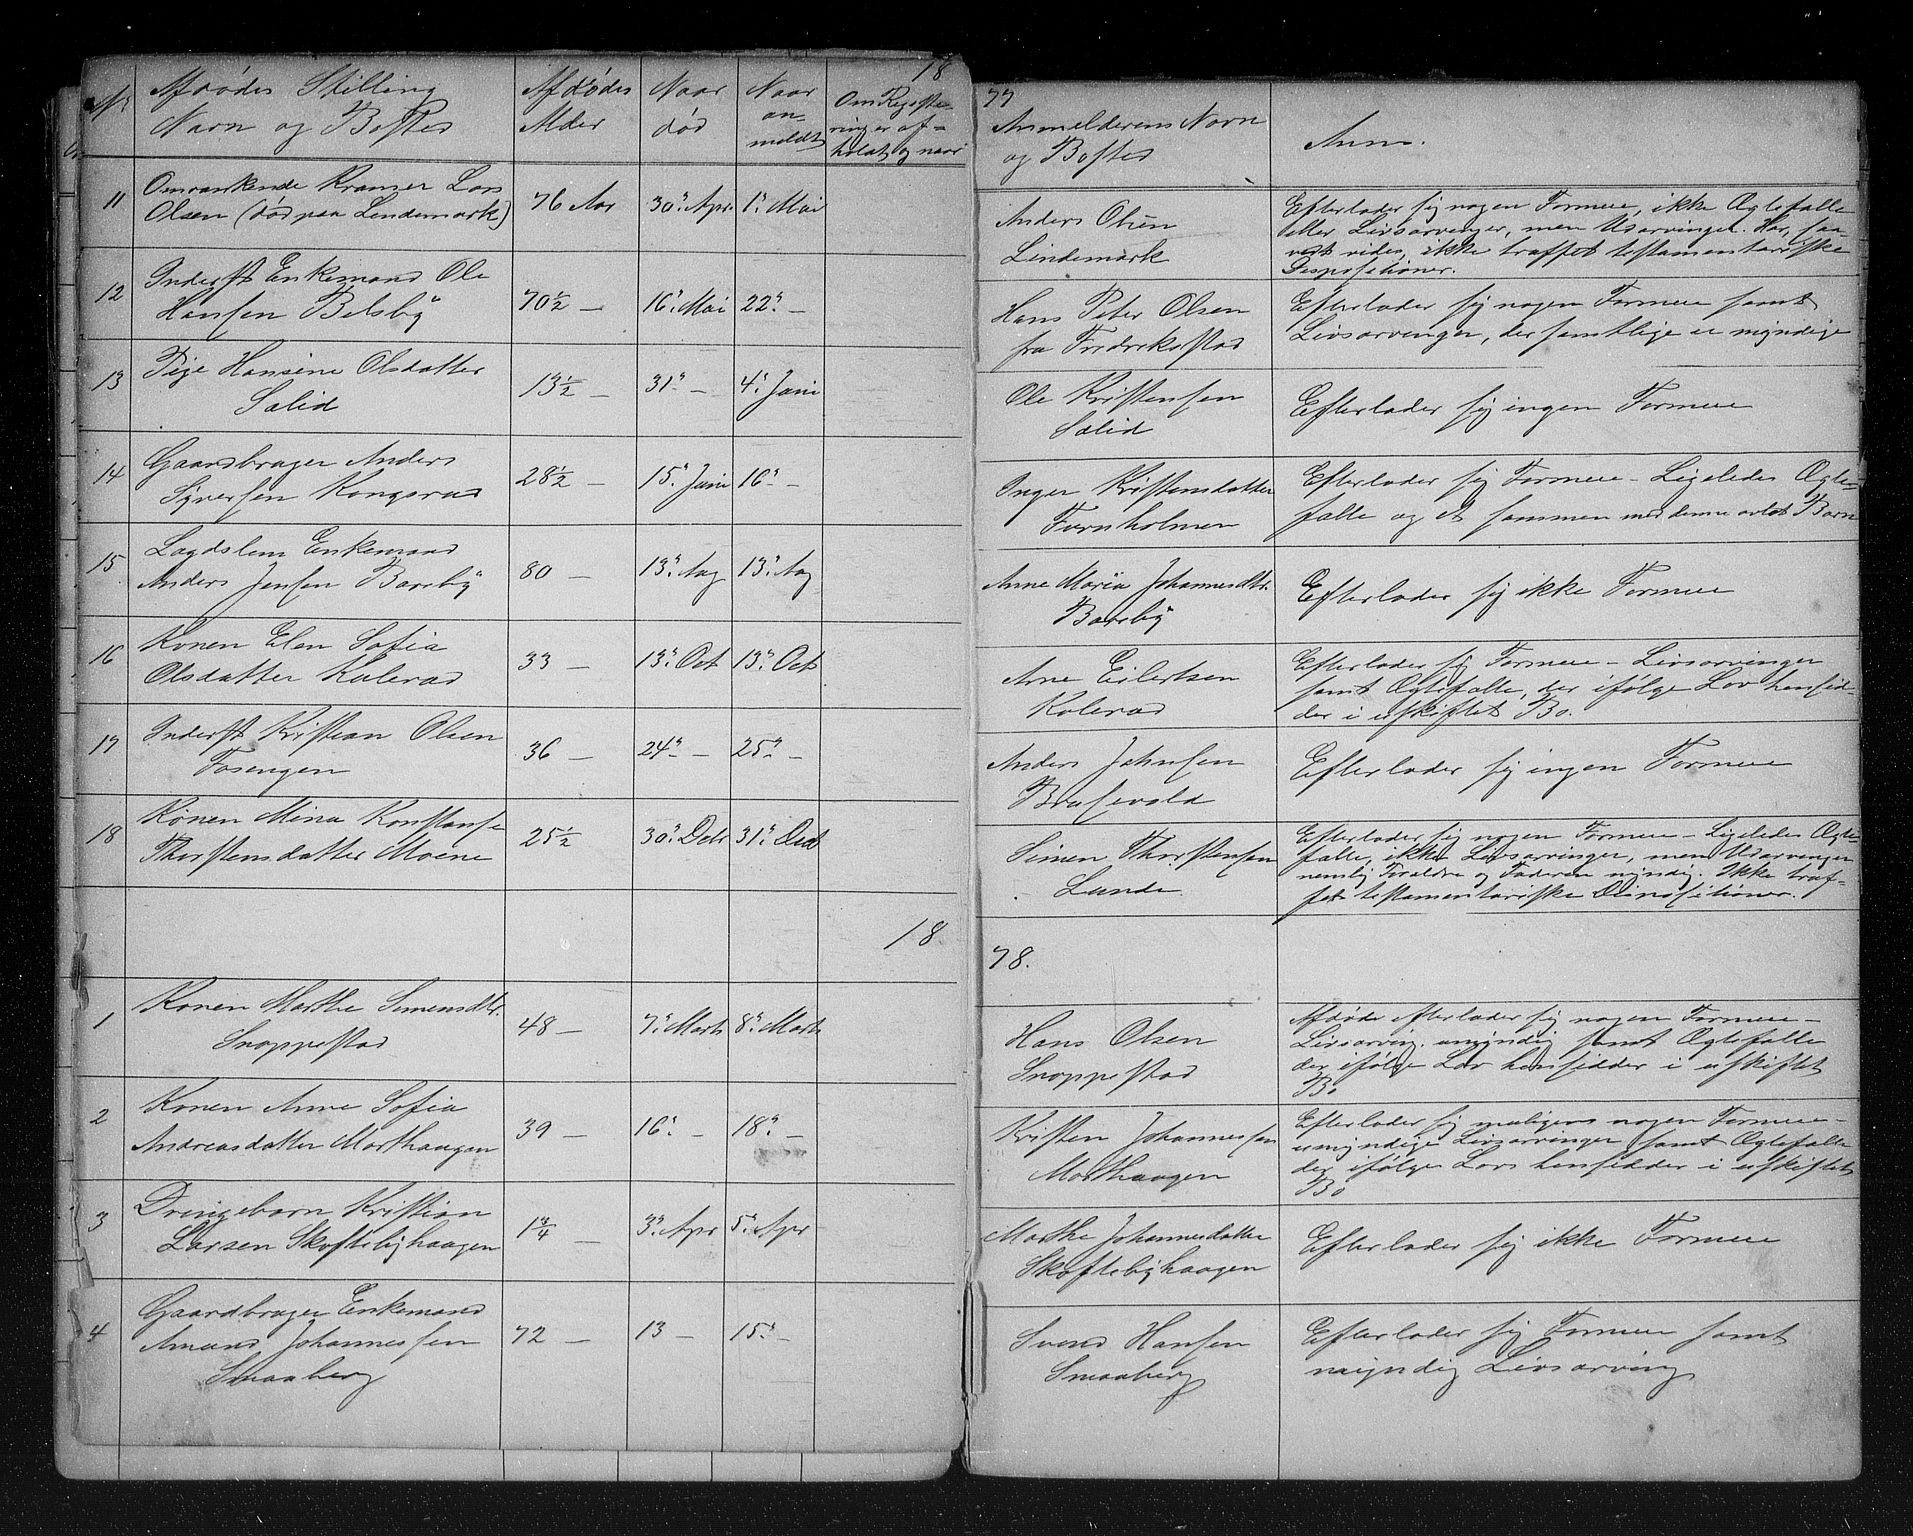 18
No
Afdødes Stilling
Navn og Bosted
Afdødes
Alder
Naar
død
Naar
an-
meldt
Om Registe-
ring er af-
holdt og naar
11
Omvankende Kramer Lars
Olsen (død paa Lindemark)
76 Aar
30' Apr
1' Mai
12
Inderst Enkemand Ole
Hansen Belsby
70½ —
16' Mai
22' —
13
Pige Hansine Olsdatter
Solid
13½ —
31' —
4' Juni
14
Gaardbruger Anders
Syversen Kongsrud
28½ —
15' Juni
16' —
15
Lægdslem Enkemand
Anders Jensen Barsby
80 —
13' Aug
13' Aug
16
Konen Elen Sofia
Olsdatter Kolerud
33 —
13' Oct
13' Oct
17
Inderst Kristian Olsen
Fosengen
36 —
24' —
25' —
18
Konen Mina Konstanse
Thorstensdatter Moene
25½
30' Octr
31' Oct
18
1
Konen Marthe Simensdtr.
Snoppestad
48 —
7' Marts
8' Marts
2
Konen Anne Sofia
Andreasdatter Morthaugen
39 —
16' —
18' —
3
Drengebarn Kristian
Larsen Skoftebyhaugen
1¾ —
3' Apr
5' Apr
4
Gaardbruger Enkemand
Amund Johannessen
Smaaberg
72 —
13 —
15' —
77
Anmelderens Navn
og Bosted
Anm.
Anders Olsen
Lindemark
Efterlader sig nogen Formue, ikke Ægtefælle
eller Livsarvinger, men Udarvinger. Har, saa-
vidt vides, ikke truffet testamentariske
Dispositioner.
Hans Peter Olsen
fra Fredrikstad
Efterlader sig nogen Formue samt
Livsarvinger, der samtlige er myndige
Ole Kristensen
Solid
Efterlader sig ingen Formue
Inger Kristensdatter
Tornholmen
Efterlader sig Formue – Ligeledes Ægte-
fælle og et sammen med denne avlet Barn
Anne Maria Johannesdtr.
Barsby
Efterlader sig ikke Formue
Arne Eilertsen
Kolerud
Efterlader sig Formue – Livsarvinger
samt Ægtefælle, der ifølge Lov hensid-
der i uskiftet Bo.
Anders Johnsen
Brusevold
Efterlader sig ingen Formue
Simen Thorstensen
Lunde
Efterlader sig nogen Formue – Ligeledes Ægte-
fælle, ikke Livsarvinger, men Udarvinger
nemlig Forældre og Faderen myndig. Ikke truf-
fet testamentariske Dispositioner.
78.
Hans Olsen
Snoppestad
Afdøde efterlader sig nogen Formue –
Livsarving. umyndig samt Ægtefælle
der ifølge Lov hensidder i uskiftet
Bo
Kristen Johannessen
Morthaugen
Efterlader sig muligens nogen Formue –
umyndige Livsarvinger samt Ægtefælle
der ifølge Lov hensidder i uskiftet
Bo
Marthe Johannesdatter
Skoftebyhaugen
Efterlader sig ikke Formue
Svend Hansen
Smaaberg
Efterlader sig Formue samt
myndig Livsarving